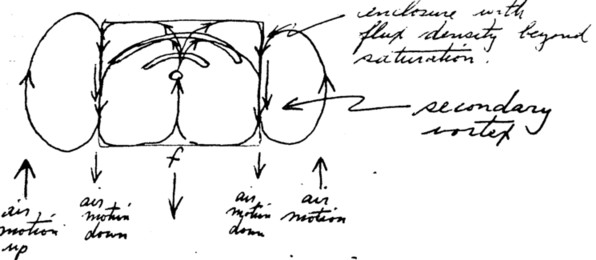 enclosure with
flux density beyond
saturation.
secondary
vortex
f
air
motion
up
air
motion
down
air
motion
down
air
motion